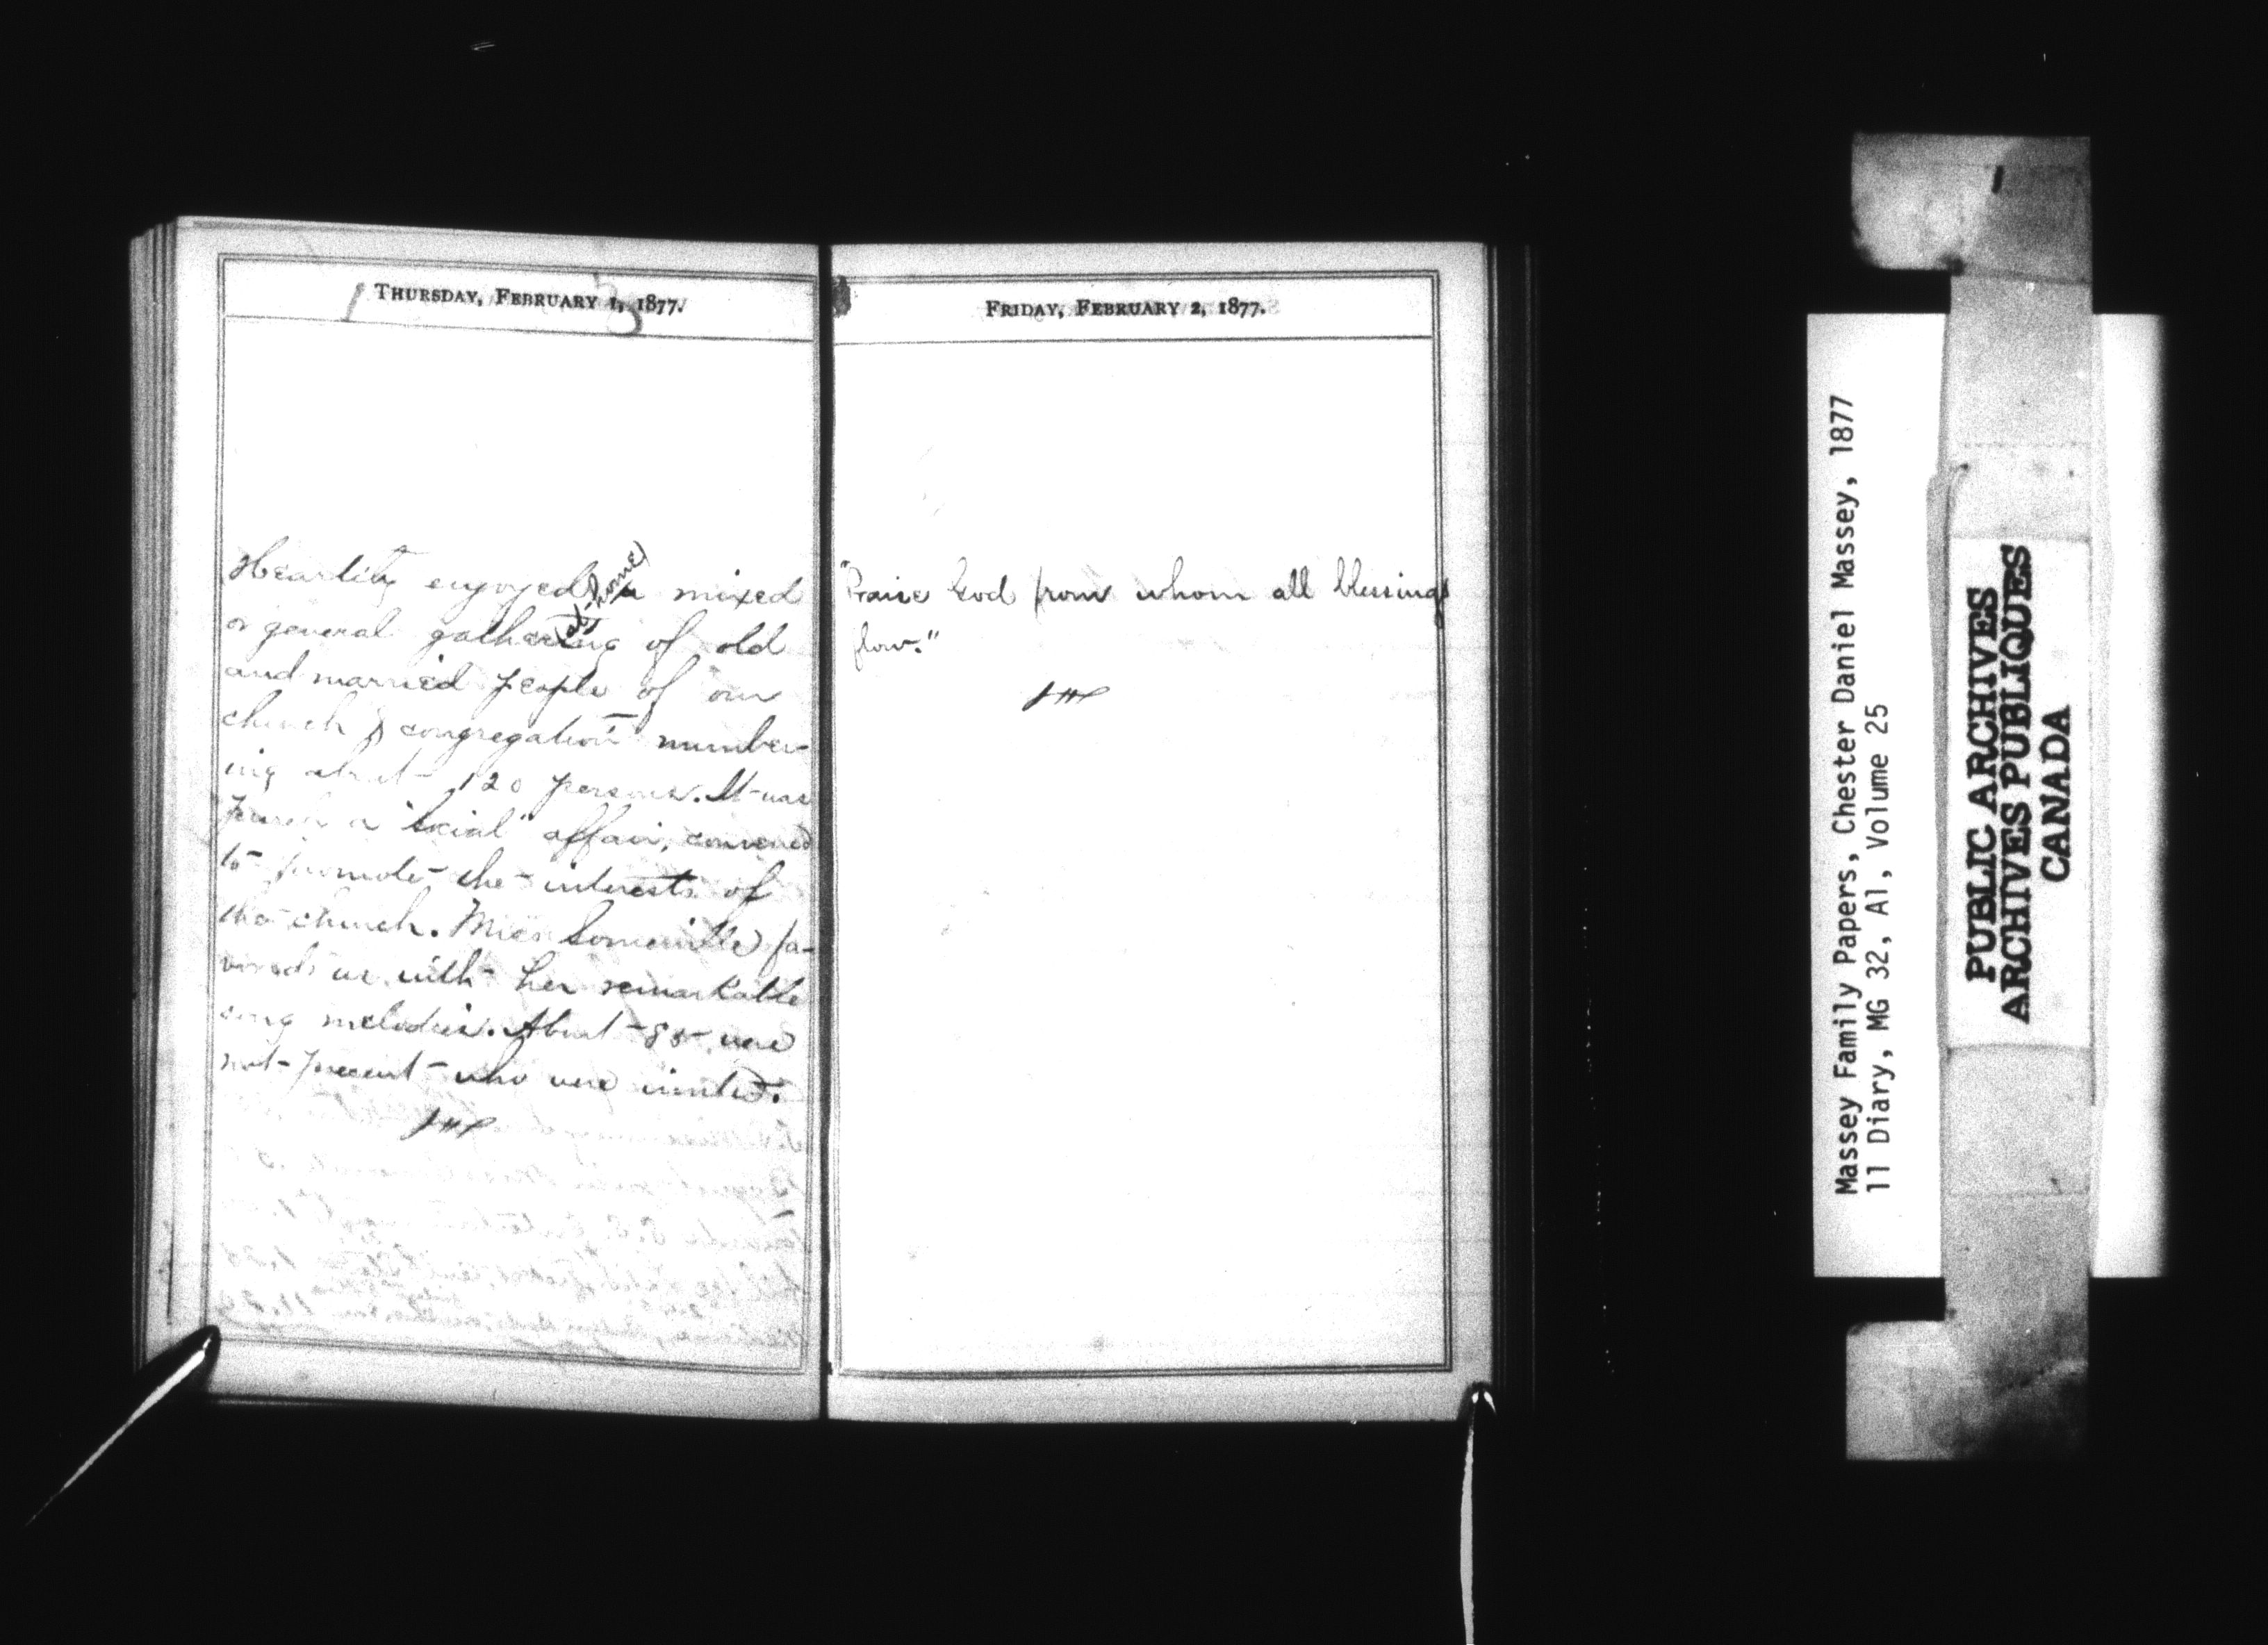 THURSDAY, FEBRUARY 1, 1877.
Heartily enjoyed (at home) a mixed
or general gathering of old
and married people of our
church & congregation number-
ing about 120 persons. It was
a "social" affair, convened
to promote the interests of
the church. Miss Somerville fa-
vored us with her remarkable
song melodies. About 80 were
not present who were invited.
FRIDAY, FEBRUARY 2, 1877.
"Praise God from whom all blessings
flow."
Massey Family Papers, Chester Daniel Massey, 1877
11 Diary, MG 32, A1, Volume 25
PUBLIC ARCHIVES
ARCHIVES PUBLIQUES
CANADA